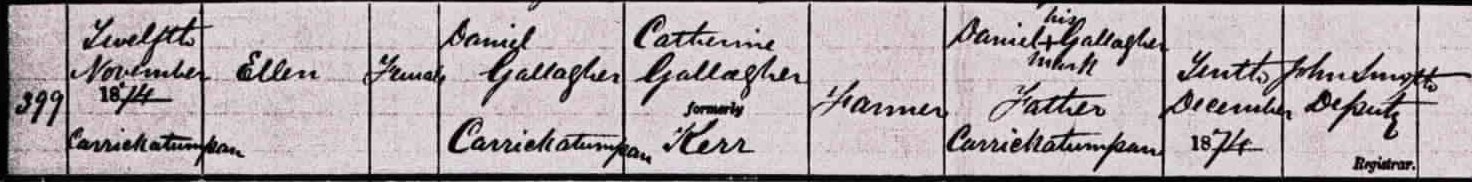 399
Twelfth
November
1874
Carrickatumpan
Ellen
Female
Daniel
Gallagher
Carrickatumpan
Catherine
Gallagher
formerly
Kerr
Farmer
his
Daniel + Gallagher
mark
Father
Carrickatumpan
Tenth
December
1874
John Smyth
Deputy
Registrar.